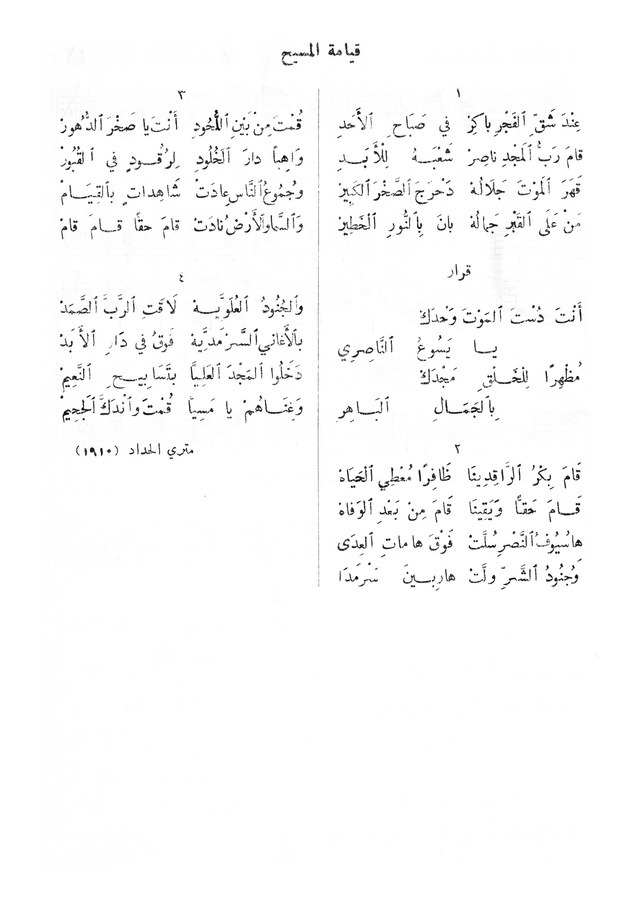 قيامة المسيح
١
عِندَ شَقِّ ٱلفَجْرِ باكِرْ في صَبَاحِ ٱلأَحَدِ
قامَ رَبُّ ٱلمَجْدِ ناصِرْ شَعْبَهُ لِلأَبَدِ
قَهَرَ ٱلمَوْتَ جَلَالُهْ دَحْرَجَ ٱلصَّخْرَ ٱلكَبِيرْ
مَنْ عَلَى ٱلقَبْرِ جمالُهْ بانَ بِٱلنُّورِ ٱلخَطِيرْ
قرار
أَنْتَ دُسْتَ ٱلمَوْتَ وَحْدَكْ
يـا يَسُوعُ ٱلنَّاصِرِي
مُظْهِرًا لِلْخَلْقِ مَجْدَكْ
بِٱلجَمَالِ ٱلبَاهِرِ
٢
قَامَ بِكْرُ ٱلرَّاقِدِينَا ظَافِرًا مُعْطِي ٱلحَيَاهْ
قَـامَ حَقًّا وَيَقِينَا قَامَ مِنْ بَعْدِ ٱلوَفاهْ
هاسُيُوفُ ٱلنَّصْرِ سُلَّتْ فَوْقَ هاماتِ ٱلعِدَى
وَجُنُودُ ٱلشَّرِّ ولَّتْ هارِبـينَ سَرْمَدَا
٣
قُمْتَ مِنْ بَيْنِ ٱللُّحُودِ أَنْتَ يا صَخْرَ ٱلدُّهُورْ
وَاهِباً دَارَ ٱلخُلُودِ لِرُقُـودٍ في ٱلقُبُورْ
وجُمُوعُ ٱلنَّاسِ عادَتْ شَاهِدَاتٍ بِٱلقِيَـامْ
وَٱلسَّما وٱلأَرْضُ نادَتْ قامَ حقًّا قَـامَ قامْ
٤
وَٱلجُنُودُ ٱلعُلَوِيَّـهْ لَاقَتِ ٱلرَّبَّ ٱلصَّمَدْ
بِٱلأَغاني ٱلسَّرْمَدِيَّهْ فَوْقُ في دَارِ ٱلأَبَدْ
دَخَلُوا ٱلمَجْدَ ٱلعَلِيَّا بِتَسَابِيـحِ ٱلنَّعِيمْ
وَغِنَاهُمْ يا مَسِيَّا قُمْتَ وَٱنْدَكَّ ٱلجَحِيمْ
متري الحداد (١٩١٠)